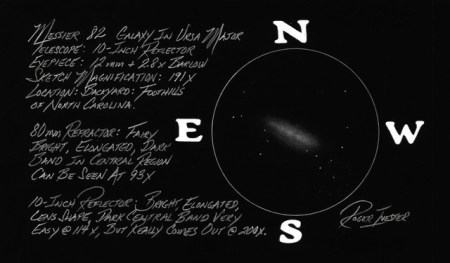 Messier 82 Galaxy In Ursa Major
Telescope: 10-Inch Reflector
Eyepiece: 12mm + 2.8x Barlow
Sketch Magnification: 191x
Location: Backyard: Foothills
Of North Carolina.
80mm Refractor: Fairy
Bright, Elongated, Dark
Band In Central Region
Can Be Seen At 93x
10-Inch Reflector: Bright Elongated,
Lens Shape, Dark Central Band Very
Easy @ 114x, But Really Comes Out @ 200x.
N
E
W
S
Roger